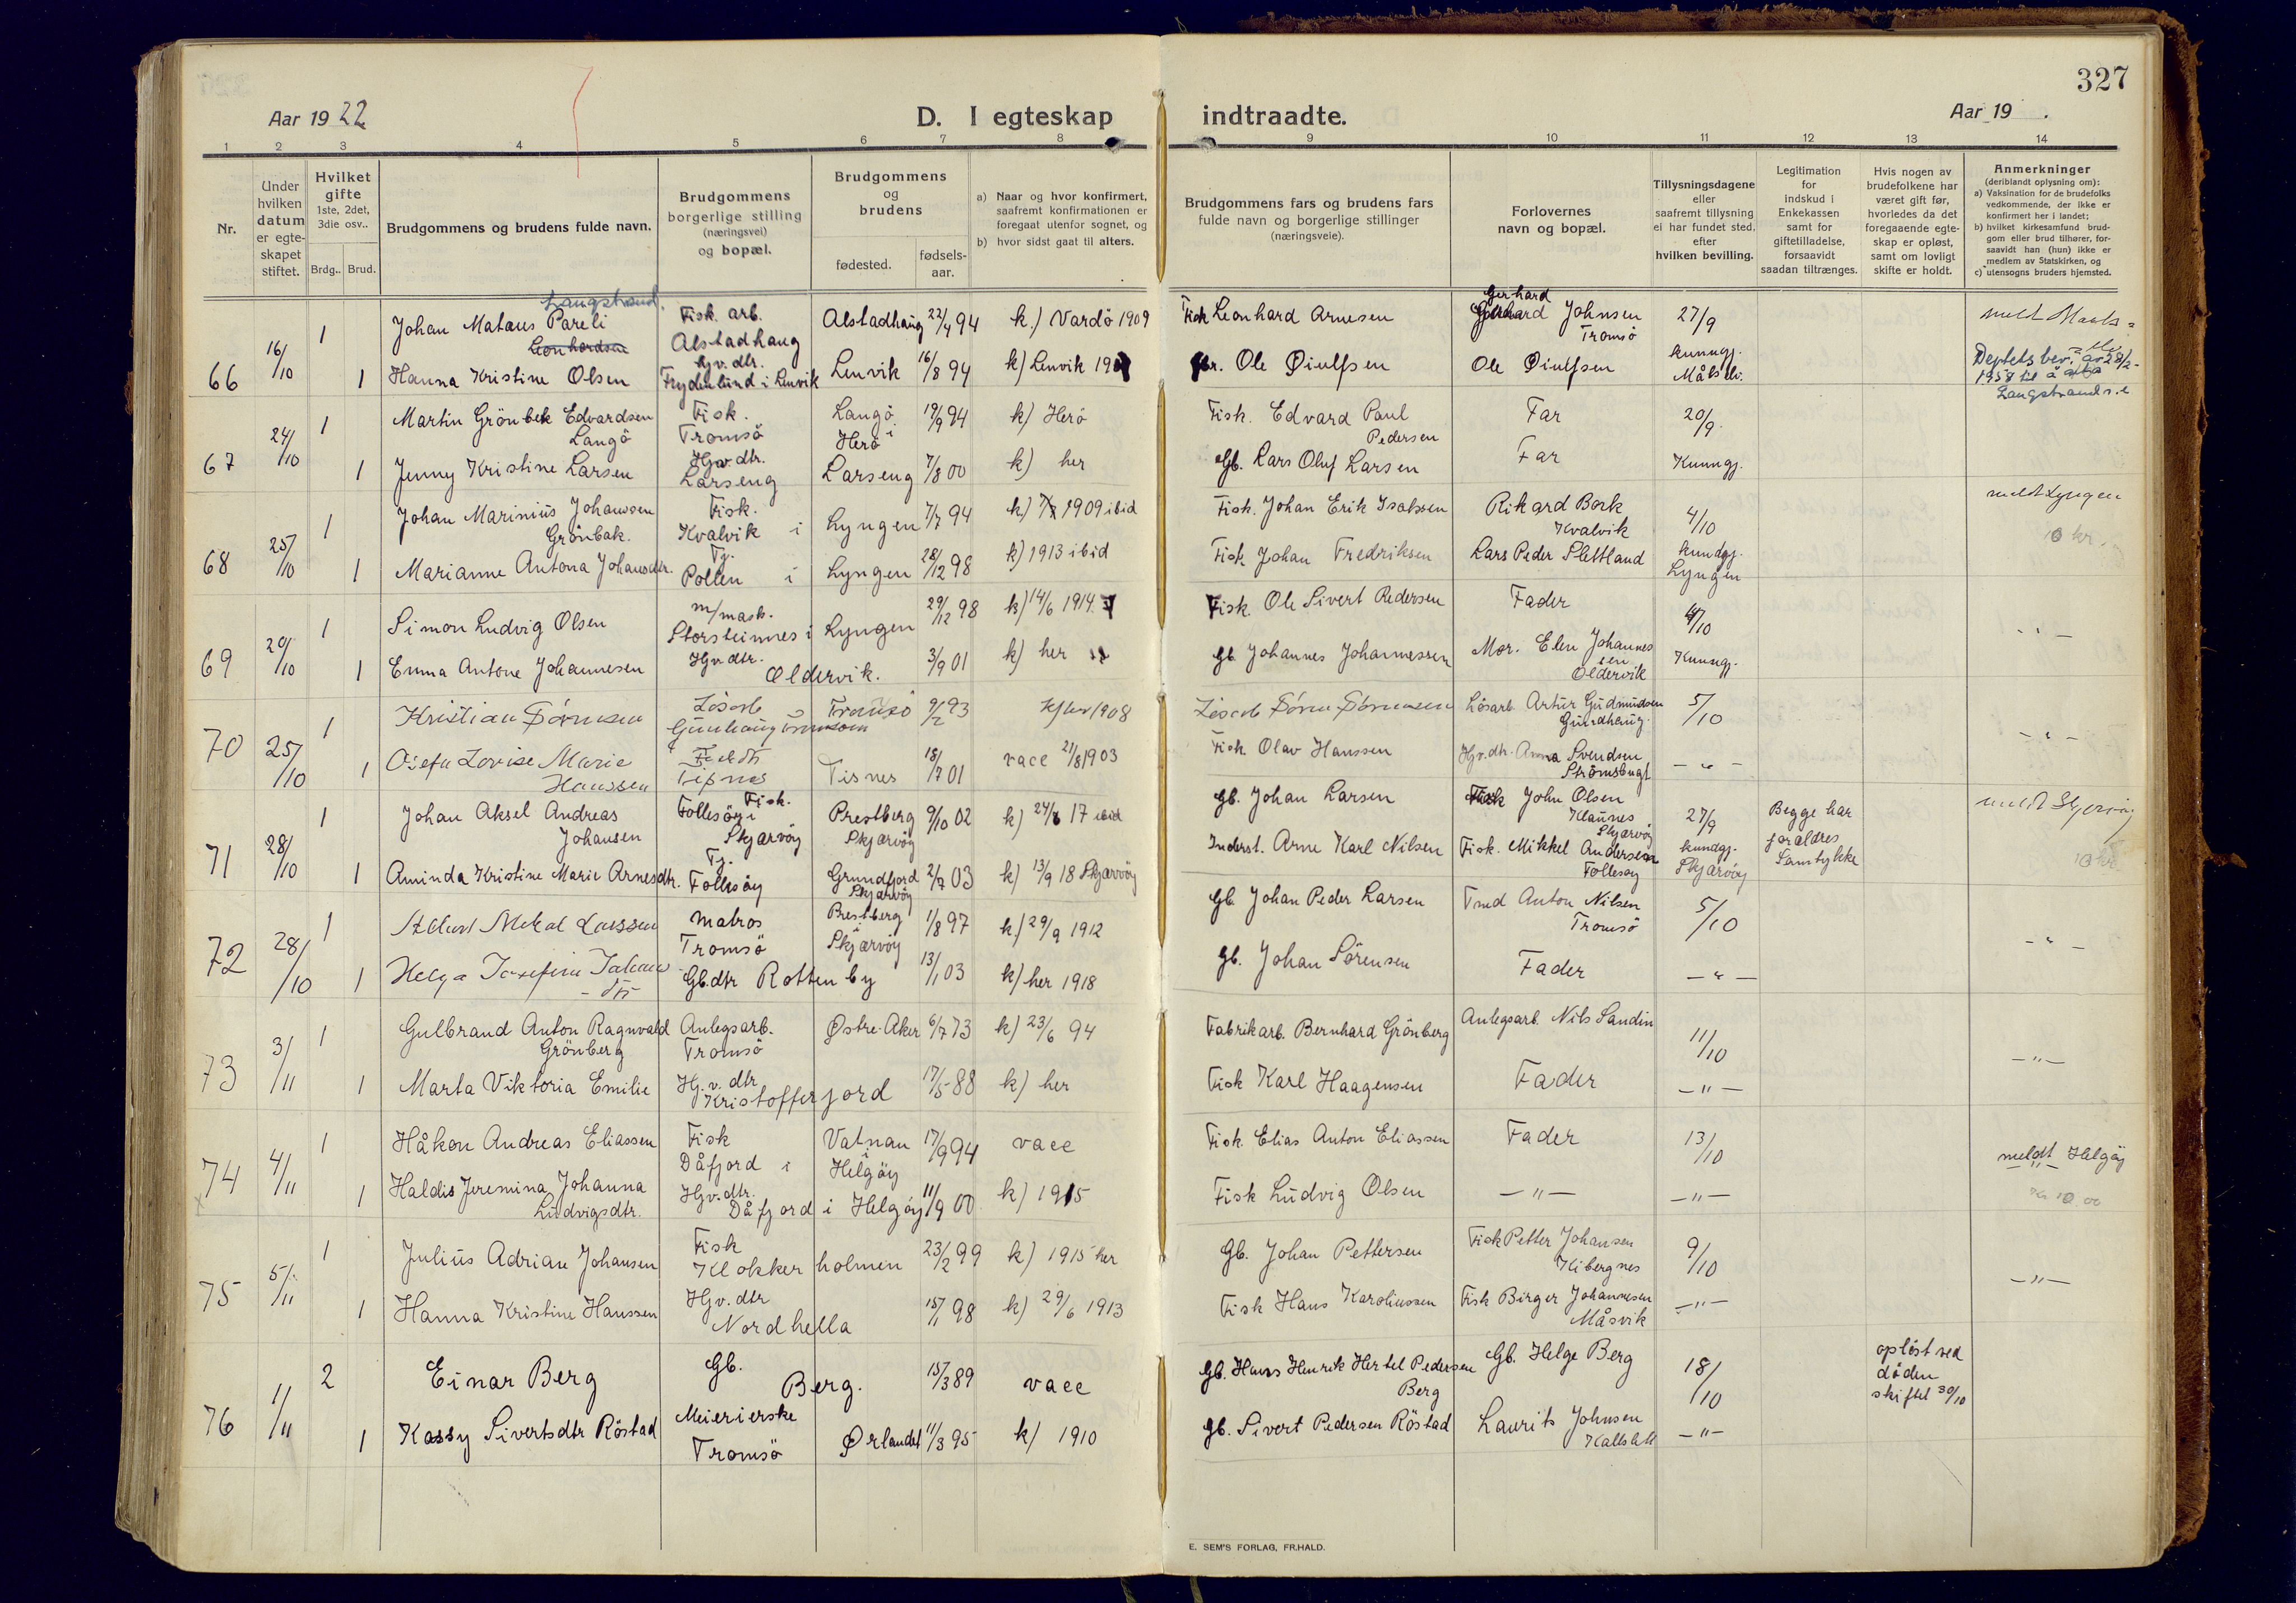 327
Aar 1922
D. I egteskap indtraadte.
Aar 19 .
1 2 3 4 5 6 7 8 9 10 11 12 13 14
Nr.
Under
hvilken
datum
er egte-
skapet
stiftet.
Hvilket
gifte
1ste, 2det,
3die osv..
Brdg.. Brud.
Brudgommens og brudens fulde navn.
Brudgommens
borgerlige stilling
(næringsvei)
og bopæl.
Brudgommens
og
brudens
fødested.
fødsels-
aar.
a) Naar og hvor konfirmert,
saafremt konfirmationen er
foregaat utenfor sognet, og
b) hvor sidst gaat til alters.
Brudgommens fars og brudens fars
fulde navn og borgerlige stillinger
(næringsveie).
Forlovernes
navn og bopæl.
Tillysningsdagene
eller
saafremt tillysning
ei har fundet sted,
efter
hvilken bevilling.
Legitimation
for
indskud i
Enkekassen
samt for
giftetilladelse,
forsaavidt
saadan tiltrænges.
Hvis nogen av
brudefolkene har
været gift før,
hvorledes da det
foregaaende egte-
skap er opløst,
samt om lovligt
skifte er holdt.
Anmerkninger
(deriblandt oplysning om):
a) Vaksination for de brudefolks
vedkommende, der ikke er
konfirmert her i landet;
b) hvilket kirkesamfund brud-
gom eller brud tilhører, for-
saavidt han (hun) ikke er
medlem av Statskirken, og
c) utensogns bruders hjemsted.
66
16/10
1
Langstrand.
Johan Mataus Pareli
Leonhardsen
Fisk. arb.
Alstadhaug
Alstadhaug
22/4 94
k.) Vardö 1909
Fisk Leonhard Arnesen
Gerhard
Johnsen
Tromsö
27/9
meldt Maals=
1
Hanna Kristine Olsen
Gv. dtr.
Frydenlund i Lenvik
Lenvik
16/8 94
k) Lenvik
Gbr. Ole Øiulfsen
Ole Øiulfsen
kunngj.
Målselv.
Deptets bev. av 28/2-
1958 til å
Langstrand s.e
67
24/10
1
Martin Grönbek Edvardsen
Langö
Fisk.
Tromsö
Langö i
Herö
19/9 94
k) Herö
Fisk. Edvard Paul
Pedersen
Far
20/9.
1
Jenny Kristine Larsen
Hgv. dtr.
Larseng
Larseng
7/8 00
k) her
Gb. Lars Oluf Larsen
Far
Kunngj.
68
25/10
1
Johan Marinius Johanssen
Grönbak.
Fisk.
Kvalvik i
Lyngen
7/7 94
k) 1909 ibid
Fisk. Johan Erik Isaksen
Rikard Bork
Kvalvik
4/10
meldt Lyngen
10 kr.
1
Marianne Antona Johansdtr.
Tj.
Pollen i
Lyngen
28/12 98
k) 1913 ibid
Fisk Johan Fredriksen
Lars Peder Slettland
kundgj.
Lyngen
69
29/10
1
Simon Ludvig Olsen
m/mask.
Storsteinnes i
Lyngen
29/12 98
k) 14/6 1914.
Fisk. Ole Sivert Pedersen
Fader
4/10
- " -
1
Emma Antone Johannesen
Hgv. dtr.
Oldervik.
3/9 01
k) her
Gb Johannes Johannessen
Mor. Elen Johannes
sen
Oldervik
Kunngj.
70
25/10
1
Kristian Sörensen
Lösarb
Tromsö
9/2 93
k) her 1908
Lösarb Sören Sörensen
Lösarb. Artur Gudmundsen
Gundhaug.
5/10
- " -
1
Osefa Lovise Marie
Hanssen
Tisnes
Tisnes
18/7 01
vacc 21/8 1903
Fisk Olav Hanssen
Hgv. dtr. Anna Svendsen
Strömsbugt
- " -
71
28/10
1
Johan Aksel Andreas
Johansen
Fisk.
Follesöy i
Skjærvöy
Prestberg
Skjærvöy
9/10 02
k) 24/6 17 ibid
Gb. Johan Larsen
Fisk John Olsen
Klaunes
Skjærvöy
27/9
Begge har
forældres
Samtykke
meldt Skjervöy
10 kr.
1
Aminda Kristine Marie Arnesdtr.
Tj.
Follesöy
Grundfjord
Skjærvöy
2/7 03
k) 13/9 18 Skjærvöy
Inderst. Arne Karl Nilsen
Fisk. Mikkel Andersen
Follesøy
kundgj.
Skjærvöy
72
28/10
1
Larssen
Matros
Tromsö
Prestberg
Skjærvöy
1/8 97
k) 29/9 1912
Gb. Johan Peder Larsen
Tmd Anton Nilsen
Tromsö
5/10
- " -
1
Helga Josefine Johans
-dtr
Gb. dtr Rottenby
13/1 03
k) her 1918
Gb. Johan Sörensen
Fader
- " -
73
3/11
1
Gulbrand Anton Ragnvald
Grönberg
Anlegsarb.
Tromsö
Østre-Aker
6/7 73
k) 23/6 94
Fabrikarb. Bernhard Grönberg
Anlegsarb. Nils Sandin
11/10
- " -
1
Marta Viktoria Emilie
Hj. v. dtr.
Kristofferjord
17/5 88
k) her
Fisk Karl Haagensen
Fader
- " -
74
4/11
1
Håkon Andreas Eliassen
Fisk
Dåfjord i
Vatnan i
Helgöy
17/9 94
vacc
Fisk. Elias Anton Eliassen
Fader
13/10
meldt Helgöy
- " -
kr 10.00
1
Haldis Jeremina Johanna
Ludvigsdtr.
Hgv. dtr.
Dåfjord i Helgöy
11/9 00
k) 1915
Fisk Ludvig Olsen
- " -
- " -
75
5/11
1
Julius Adrian Johansen
Fisk
Klokkerholmen
23/2 99
k) 1915 her
Gb. Johan Pettersen
Fisk Petter Johansen
Kibergnes
9/10
- " -
1
Hanna Kristine Hanssen
Hjv. dtr
Nordhella
15/1 98
k) 29/6 1913
Fisk Hans Karoliussen
Fisk Birger Johannesen
Måsvik
- " -
76
1/11
2
Einar Berg
Gb.
Berg.
15/3 89
vacc
Gb. Hans Henrik Hertel Pedersen
Berg
Gb. Helge Berg
18/10
opløst ved
döden
skiftet 30/10
1
Kassy Sivertsdtr Röstad
Meierierske
Tromsö
Ørlandet
11/3 95
k) 1910
Gb. Sivert Pedersen Röstad
Laurits Johnsen
Kallslett
- " -
E. SEM'S FORLAG, FR.HALD.